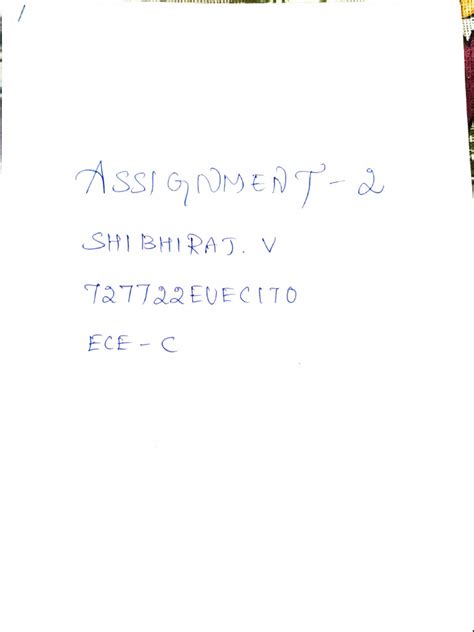 ASSIGNMENT - 2
SHIBHIRAJ. V
727722EUEC170
ECE - C